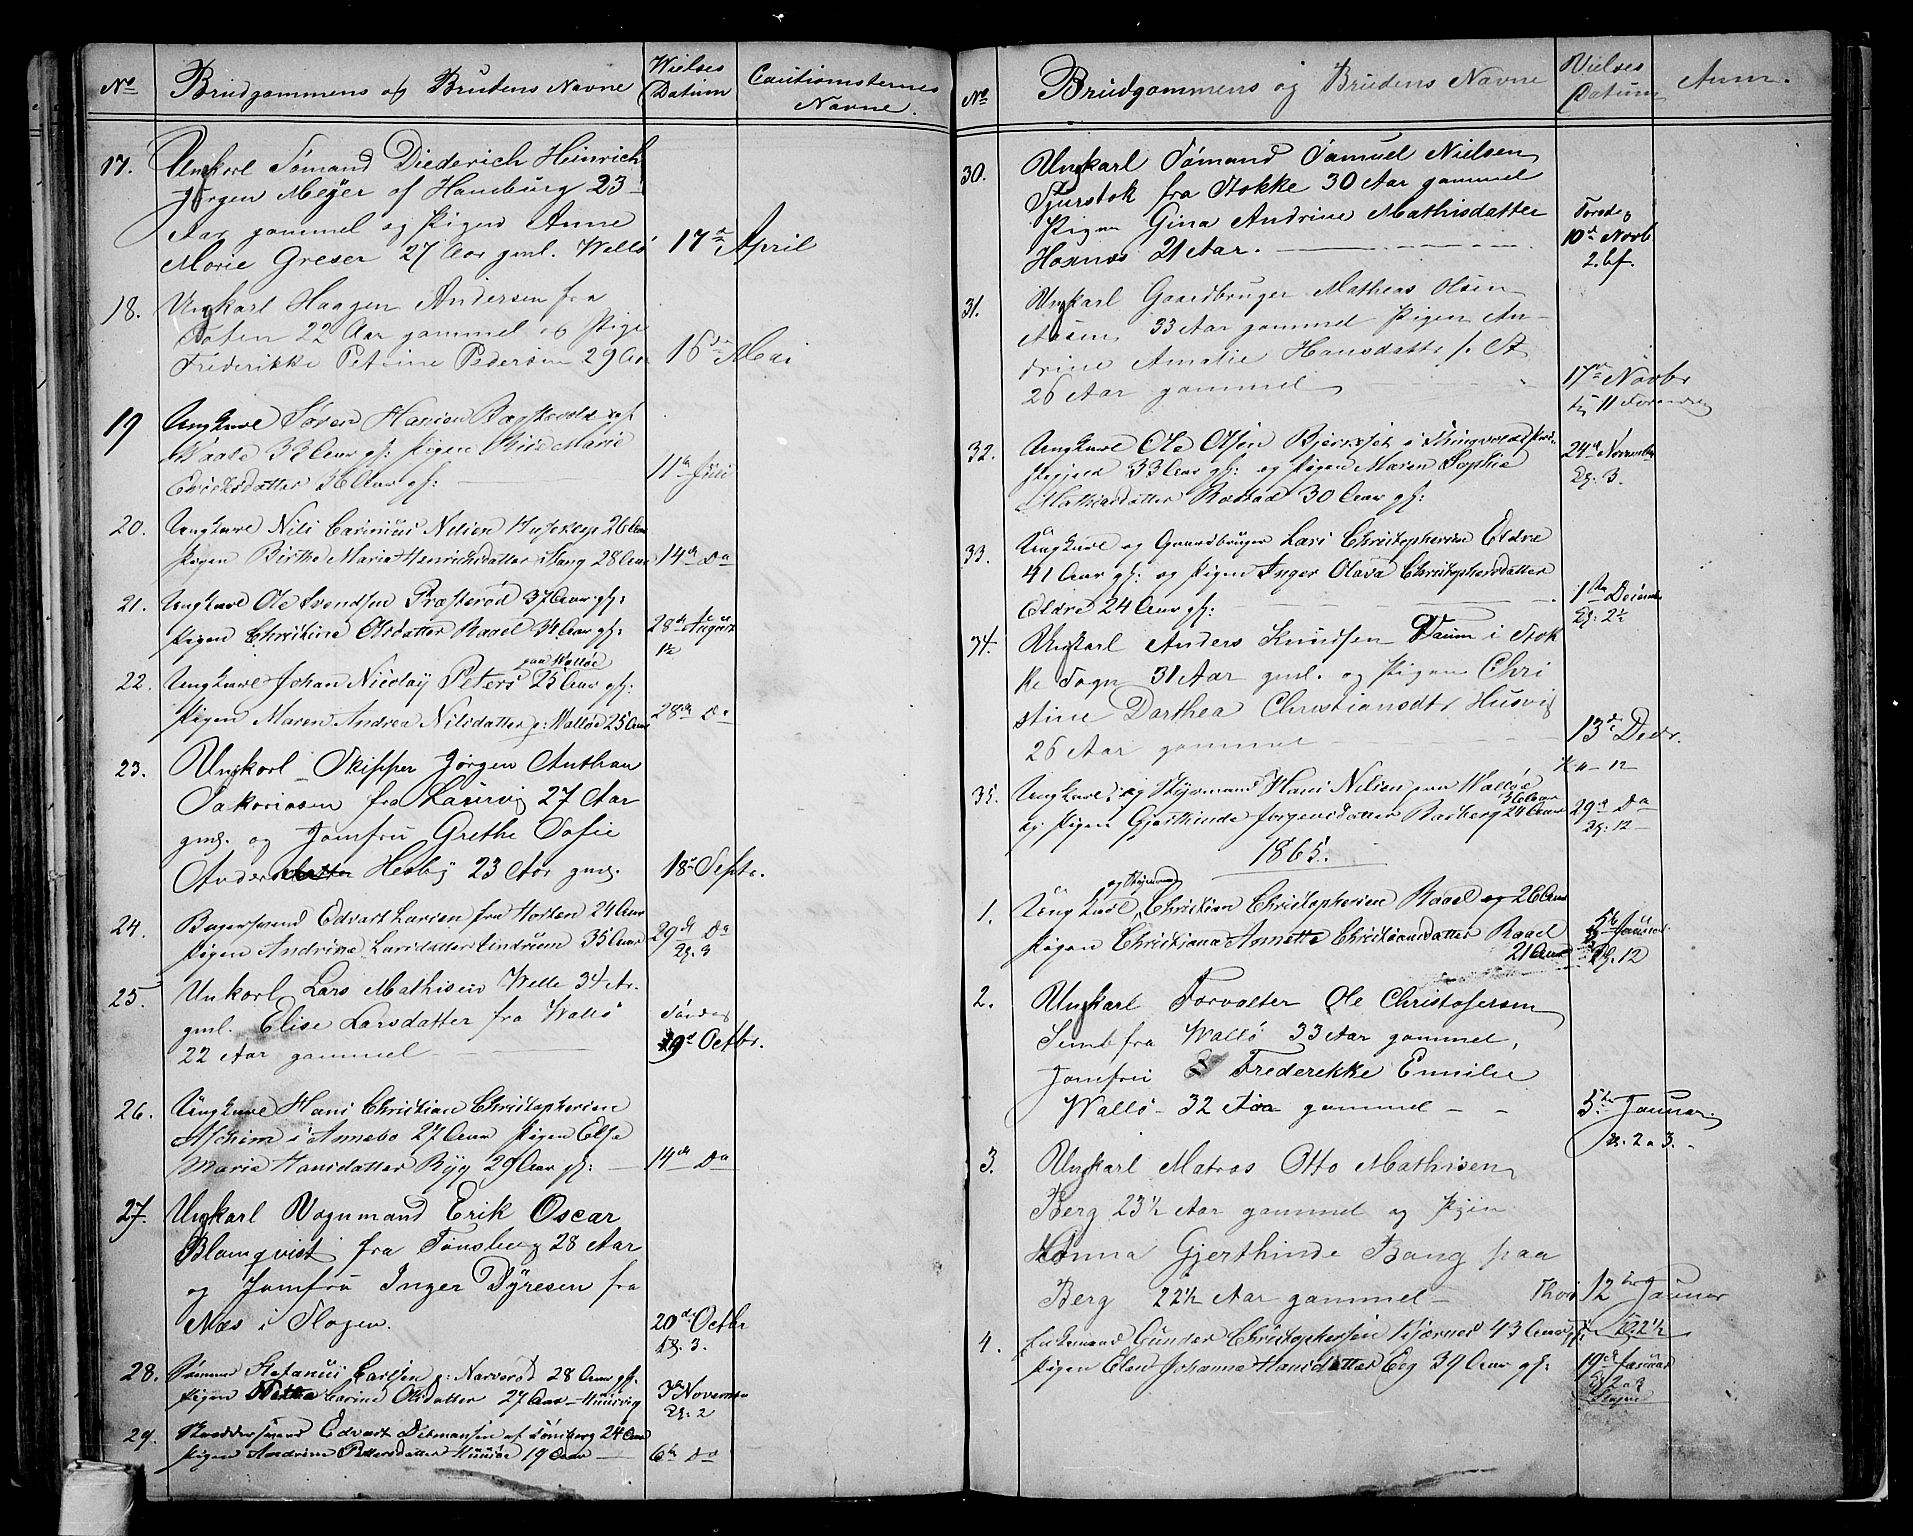 No Brudgommens og Brudens Navne Vielses Datum Cautionisternes Navne.
17. Ungkarl Sømand Diederich Heinrich
Jørgen Meyer af Hamburg 23
Aar gammel og Pigen Anne
Marie Greser 27 Aar gml. Wallø 17de April
18. Ungkarl Haagen Andersen fra
Toten 22 Aar gammel og Pige
Frederikke Petrine Pedersen 29 Aar 16de Mai
19 Ungkarl Søren Hansen
32 Aar gl: Pigen Marie
Ericksdatter 36 Aar gl: 11te Juli
20. Ungkarl Nils Carinius Nilsen 26 Aar
Pigen Birthe Maria Henrichsdatter 28 Aar 14de Do
21. Ungkarl Ole Svendsen Præsterød 37 Aar gl:
Pigen Christine Olsdatter Raael 34 Aar gl: 28de August
1½
paa Walløe
22. Ungkarl Johan Nicolay Peters 25 Aar gl:
Pigen Maren Andrea Nilsdatter p: Walløe 25 Aar 28de Do
23. Ungkarl Skipper Jørgen Anthon
Sakariasen fra Laurvig 27 Aar
gml. og Jomfru Grethe Sofie
Andersdatter Hesby 23 Aar gml. 18de Septr.
24. Bagersvend Edvart Larsen fra Horten 24 Aar
Pigen Andrine Larsdatter Lindrum 35 Aar 29de Do
Kl. 3
25. Unkarl Lars Mathisen Welle 34 Ar.
gml. Elise Larsdatter fra Wallø
22 Aar gammel 9de Octbr.
26. Ungkarl Hans Christian Christophersen
Askeim i Annebo 27 Aar Pigen Else
Maria Hansdatter Ryg 29 Aar gl: 14de Do
27. Ungkarl Vognmand Erik Oscar
Blomqvist fra Tønsberg 28 Aar
og Jomfru Inger Dyresen fra
Næs i Slagen. 20de Octbr
Kl. 3.
28. Sømand Stefanus Carlsen p: Narverød 28 Aar gl:
Pigen Nette Carine Olsdatter 27 Aar Huusvig 3de November
Kl. 2
29. Skreddersvend Edvart Ditmansen af Tönsberg 24 Aar
Pigen Andrine Pettersdatter Huusøe 19 Aar 6te Do
No Brudgommens og Brudens Navne Vielses Datum Anm.
30. Ungkarl Sømand Samuel Nielsen
fra Stokke 30 Aar gammel
Pigen Gina Andrine Mathisdatter
Haxnæs 21 Aar. Torsdag
10de Novb
2. Ef.
31. Ungkarl Gaardbruger Mathias Olsen
Aasen 33 Aar gammel Pigen An-
drine Amalie Hansdattr
26 Aar gammel 17de Novbr
11 Formdg
32. Ungkarl Ole Olsen i
33 Aar gl: og Pigen Maren Sophie
Mathiasdatter 30 Aar gl: 24de November
Kl. 3.
33. Ungkarl og Gaardbruger Lars Christophersen Eldre
41 Aar gl: og Pigen Inger Olava Christophersdatter
Eldre 24 Aar gl: 1ste
Kl. 2½
34. Ungkarl Anders Knudsen i Stok
ke Sogn 31 Aar gml. og Pigen Chri
stine Dorthea Christiansdt, Husvig
26 Aar gammel 13de Decbr.
Kl 11 - 12
35. Ungkarl og Styrmand Hans Nilsen paa Walløe
36 Aar
og Pigen Gjerthinde Jørgensdatter Basberg 24 Aar 29de Do
Kl. 12
1865.
og Styrmand
1. Ungkarl, Christian Christophersen Raael og 26 Aar
Pigen Christiana Annette Christiansdatter Raael
21 Aar 5te Januar
Kl. 12
2. Ungkarl Forvalter Ole Christofersen
Semb fra Wallø 33 Aar gammel,
Jomfru Frederekke Emilie
Wallø 32 Aar gammel 5te Januar.
Kl. 2 a 3.
3. Ungkarl Matros Otto Mathisen
Berg 23½ Aar gammel og Pigen
Hanna Gjerthinde Bang paa
Berg 22½ Aar gammel 12te Januar
Kl. 2½
4. Enkemand Gunder Christophersen Kjærnes 43 Aar gl:
Pigen Elen Johanna Hansdatter Eeg 39 Aar gl: 19de Januar
Kl 2 a 3